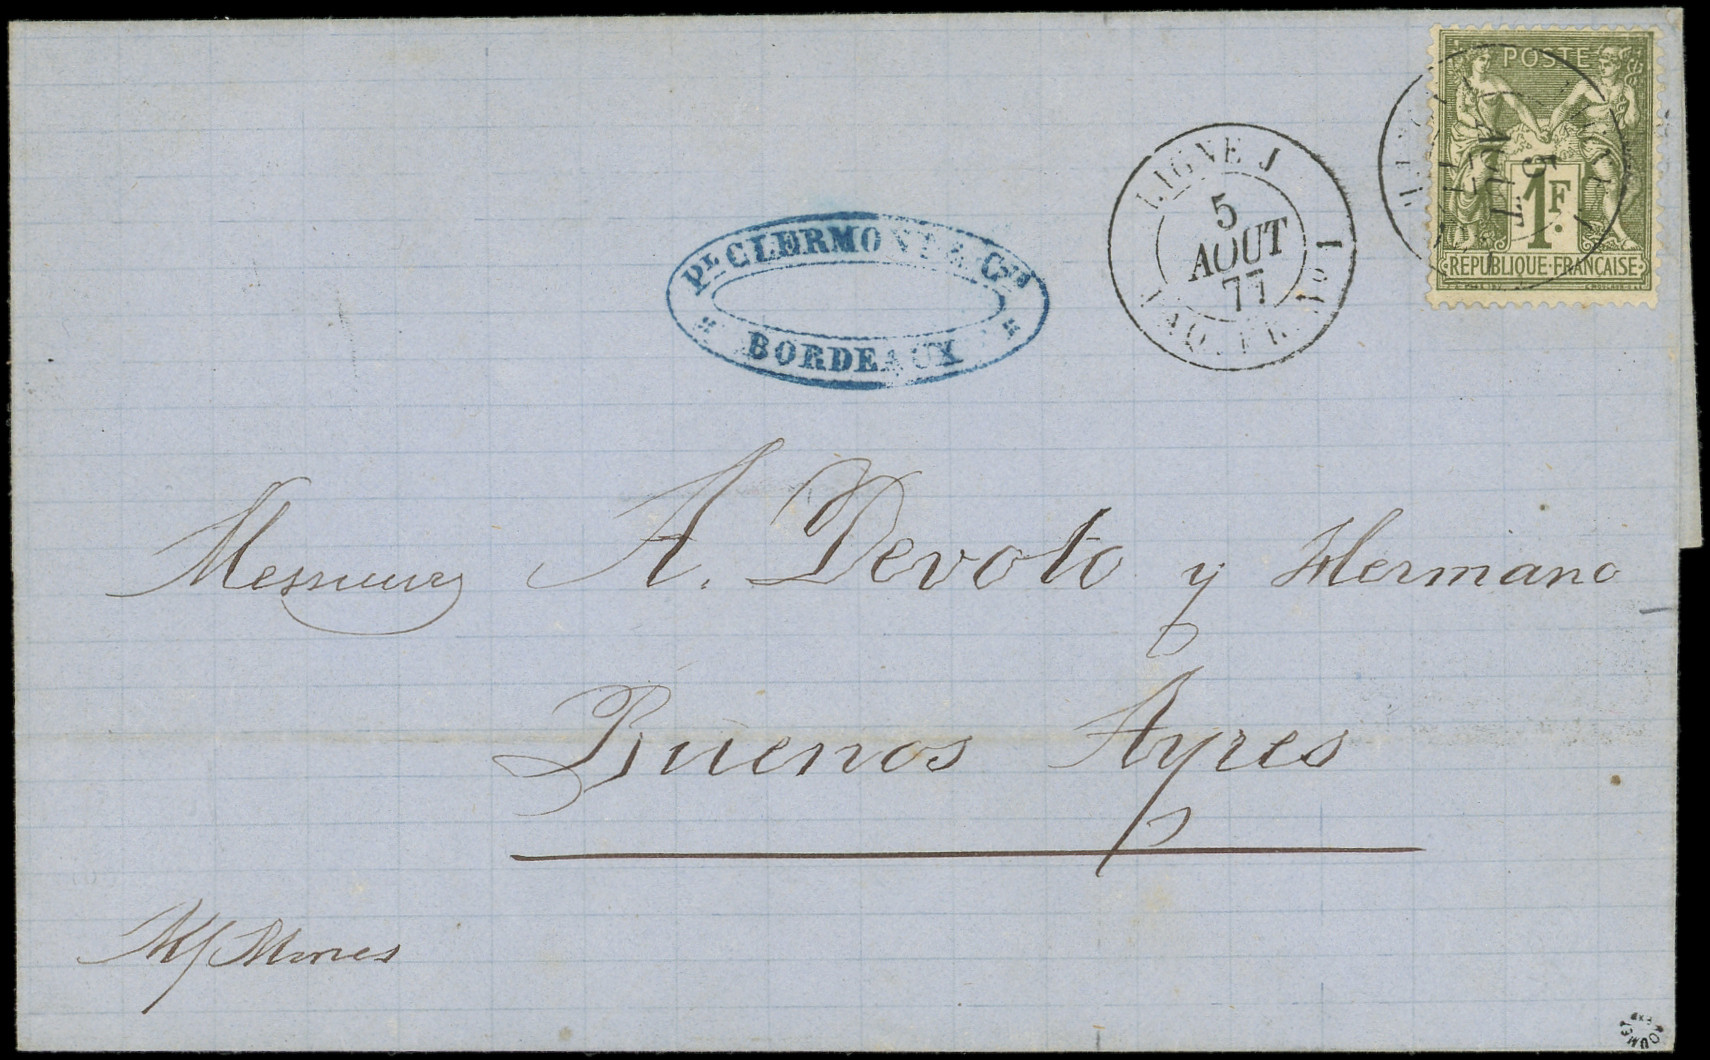 POSTE
1F
RÉPUBLIQUE FRANÇAISE
LIGNE J
5
AOUT
77
PAQ. FR. Nº1
5
AOUT
77
PL CLERMONT & Cie
BORDEAUX
Messieurs A. Devoto y Hermano
Buenos Ayres